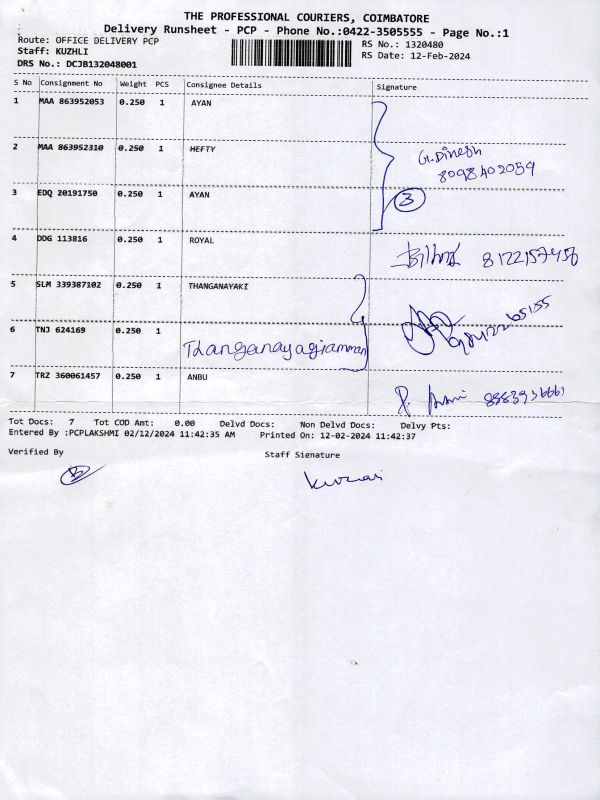 THE PROFESSIONAL COURIERS, COIMBATORE
Delivery Runsheet - PCP - Phone No.:0422-3505555 - Page No.:1
Route: OFFICE DELIVERY PCP
Staff: KUZHLI
DRS No.: DCJB132048001
RS No.: 1320480
RS Date: 12-Feb-2024
S No Consignment No Weight PCS Consignee Details Signature
1 MAA 863952053 0.250 1 AYAN
2 MAA 863952310 0.250 1 HEFTY
G. Dinesh
8098402059
3 EDQ 20191750 0.250 1 AYAN
3
4 DDG 113816 0.250 1 ROYAL
8122157456
5 SLM 339387102 0.250 1 THANGANAYAKI
6 TNJ 624169 0.250 1
Thanganayagiamman
7 TRZ 360061457 0.250 1 ANBU
Tot Docs: 7 Tot COD Amt: 0.00 Delvd Docs: Non Delvd Docs: Delvy Pts:
Entered By :PCPLAKSHMI 02/12/2024 11:42:35 AM Printed On: 12-02-2024 11:42:37
Verified By Staff Signature